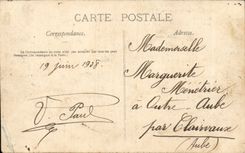 CARTE POSTALE
Correspondance
Adresse
19 juin 1908
V. Paul
Mademoiselle
Marguerite
Ménétrier
à Outre-Aube
par Clairvaux
(Aube)